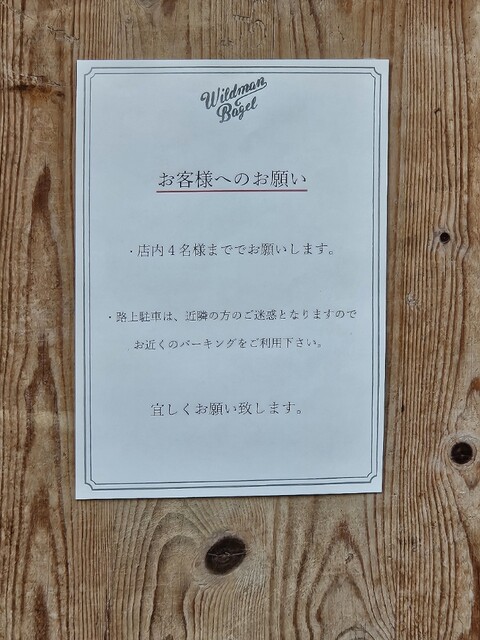 Wildman
Bagel
お客様へのお願い
・店内4名様まででお願いします。
・路上駐車は、近隣の方のご迷惑となりますので
お近くのパーキングをご利用下さい。
宜しくお願い致します。